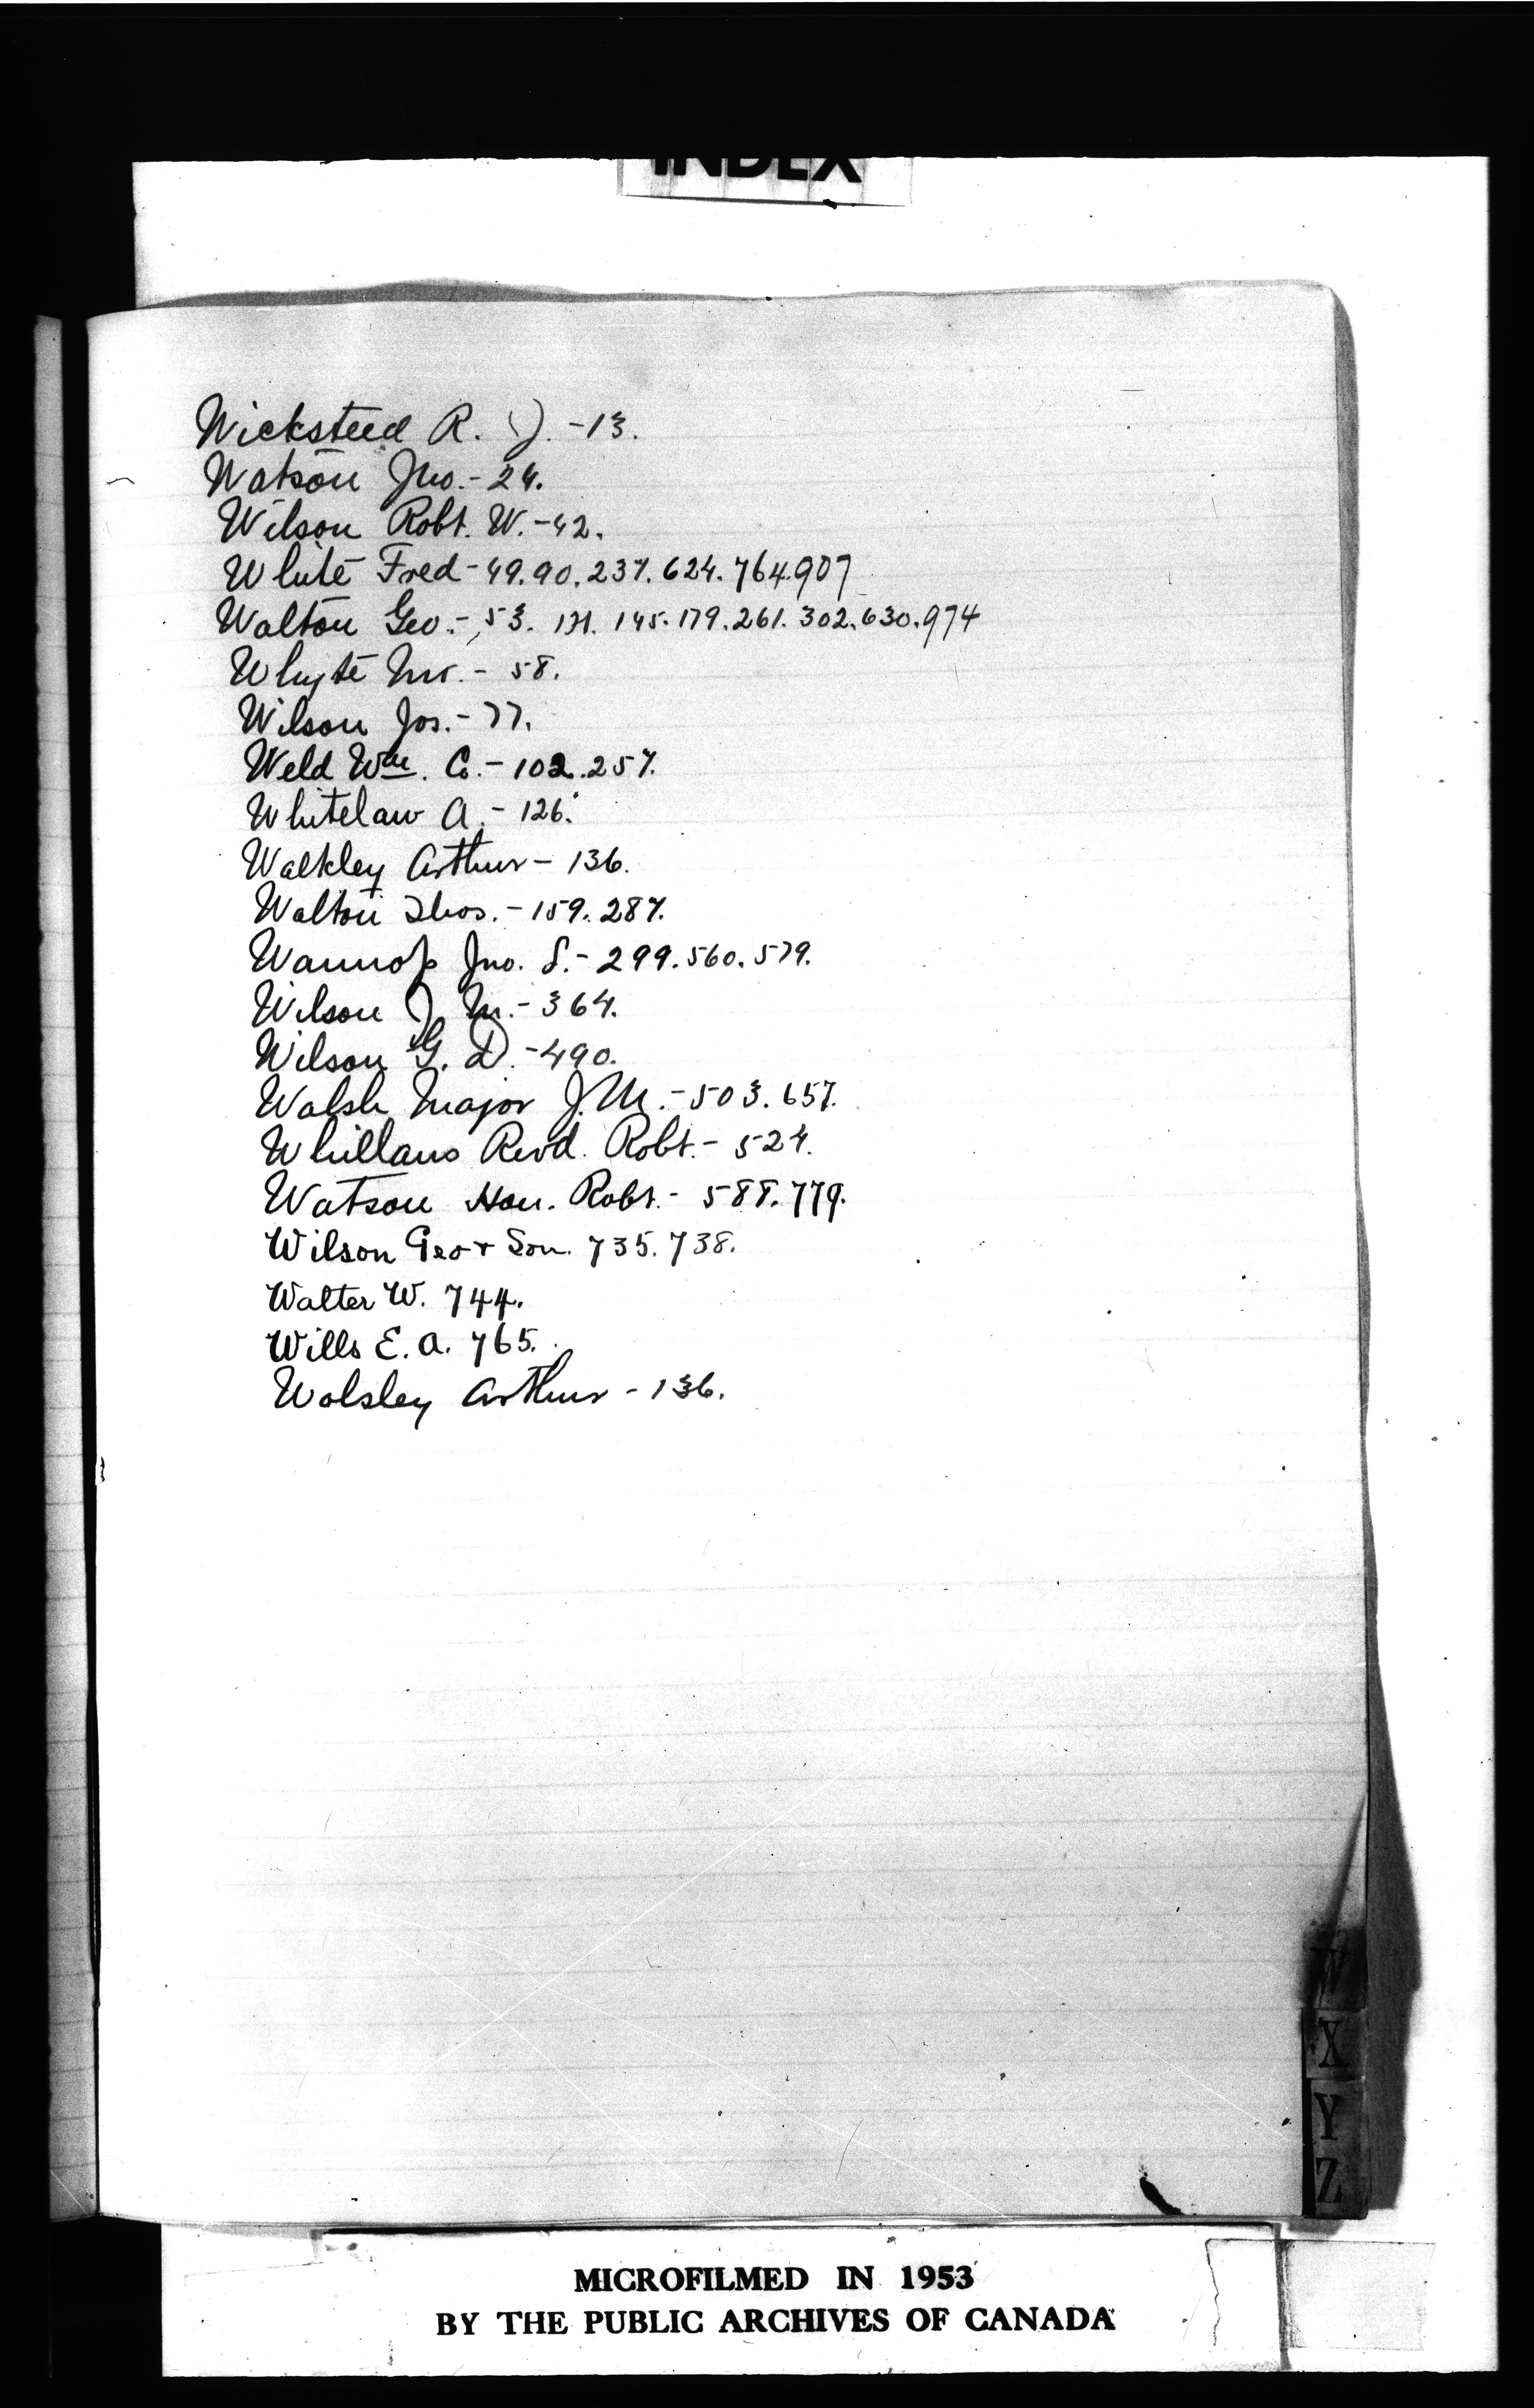 INDEX
Wicksteed R. J. -13.
Watson Jno.- 24.
Wilson Robt. W.-42.
White Fred- 49.90.237.624.764.907
Walton Geo.- 53. 131. 145.179.261.302.630.974
Whyte Mr.- 58.
Wilson Jos.- 77.
Weld Wm. Co.- 102.257.
Whitelaw A.- 126.
Walkley Arthur- 136.
Walton Thos.- 159.287.
Wannop Jno. S.- 299.560.579.
Wilson J. M.- 364.
Wilson G. D.- 490.
Walsh Major J.M.- 503.657.
Whillans Revd. Robt.- 524.
Watson Hon. Robt.- 588.779.
Wilson Geo + Son. 735.738.
Walter W. 744.
Wills E. A. 765.
Wolsley Arthur - 136.
W
X
Y
Z
MICROFILMED IN 1953
BY THE PUBLIC ARCHIVES OF CANADA